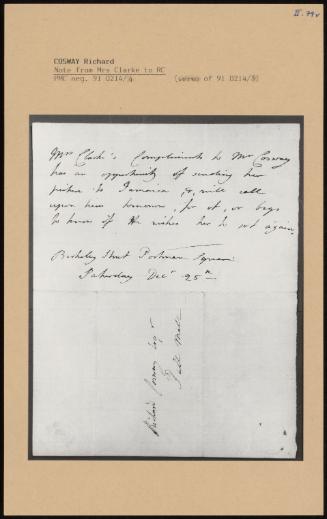 II. 79v
COSWAY Richard
Note from Mrs Clarke to RC
PMC neg. 91 0214/4 (verso of 91 0214/3)
Mrs Clarke's Compliments to Mr Cosway
has an oppertunity of sending her
picture to Jamaica &, will call
upon him tomorrow, for it, or begs
to know if He wishes her to set again,
Berkeley Street Portman Square
Saturday Decr 25th
Richard Cosway Esqr
Pall Mall